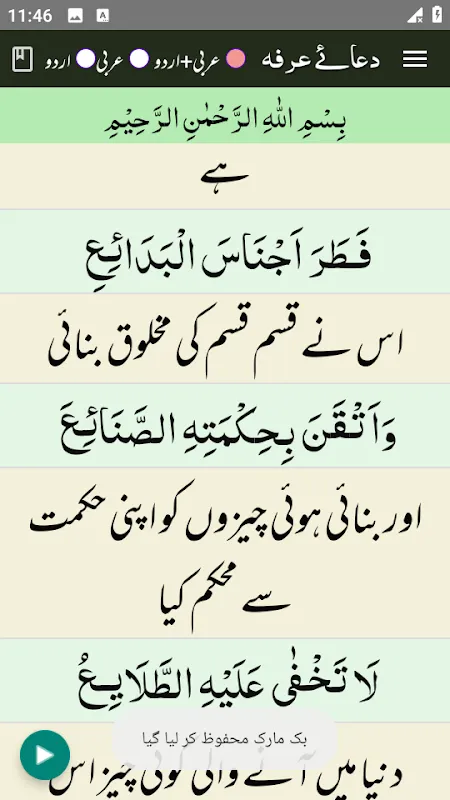 11:46
دعائے عرفہ عربی+اردو عربی اردو
بِسْمِ اللهِ الرَّحْمٰنِ الرَّحِيْمِ
ہے
فَطَرَ اَجْنَاسَ الْبَدَائِعِ
اس نے قسم قسم کی مخلوق بنائی
وَاَتْقَنَ بِحِكْمَتِهِ الصَّنَائِعَ
اور بنائی ہوئی چیزوں کو اپنی حکمت
سے محکم کیا
لَا تَخْفٰى عَلَيْهِ الطَّلَايِعُ
بک مارک محفوظ کر لیا گیا
دنیا میں آنے والی کوئی چیز اس